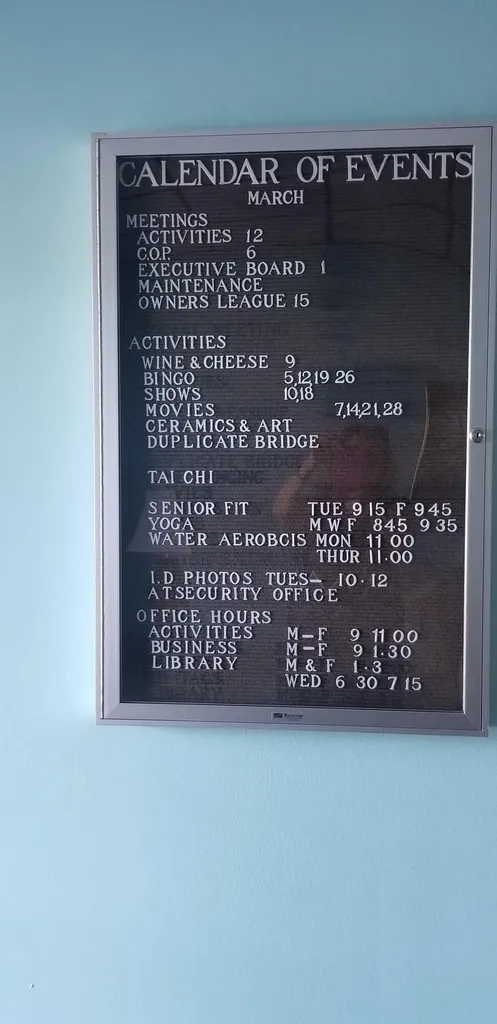 CALENDAR OF EVENTS
MARCH
MEETINGS
ACTIVITIES 12
C.O.P. 6
EXECUTIVE BOARD 1
MAINTENANCE
OWNERS LEAGUE 15
ACTIVITIES
WINE & CHEESE 9
BINGO 5,12,19 26
SHOWS 10,18
MOVIES 7,14,21,28
CERAMICS & ART
DUPLICATE BRIDGE
TAI CHI
SENIOR FIT TUE 9 15 F 9 45
YOGA M W F 8 45 9 35
WATER AEROBCIS MON 11 00
THUR 11.00
I.D PHOTOS TUES– 10·12
ATSECURITY OFFICE
OFFICE HOURS
ACTIVITIES M–F 9 11 00
BUSINESS M–F 9 1·30
LIBRARY M & F 1·3
WED 6 30 7 15